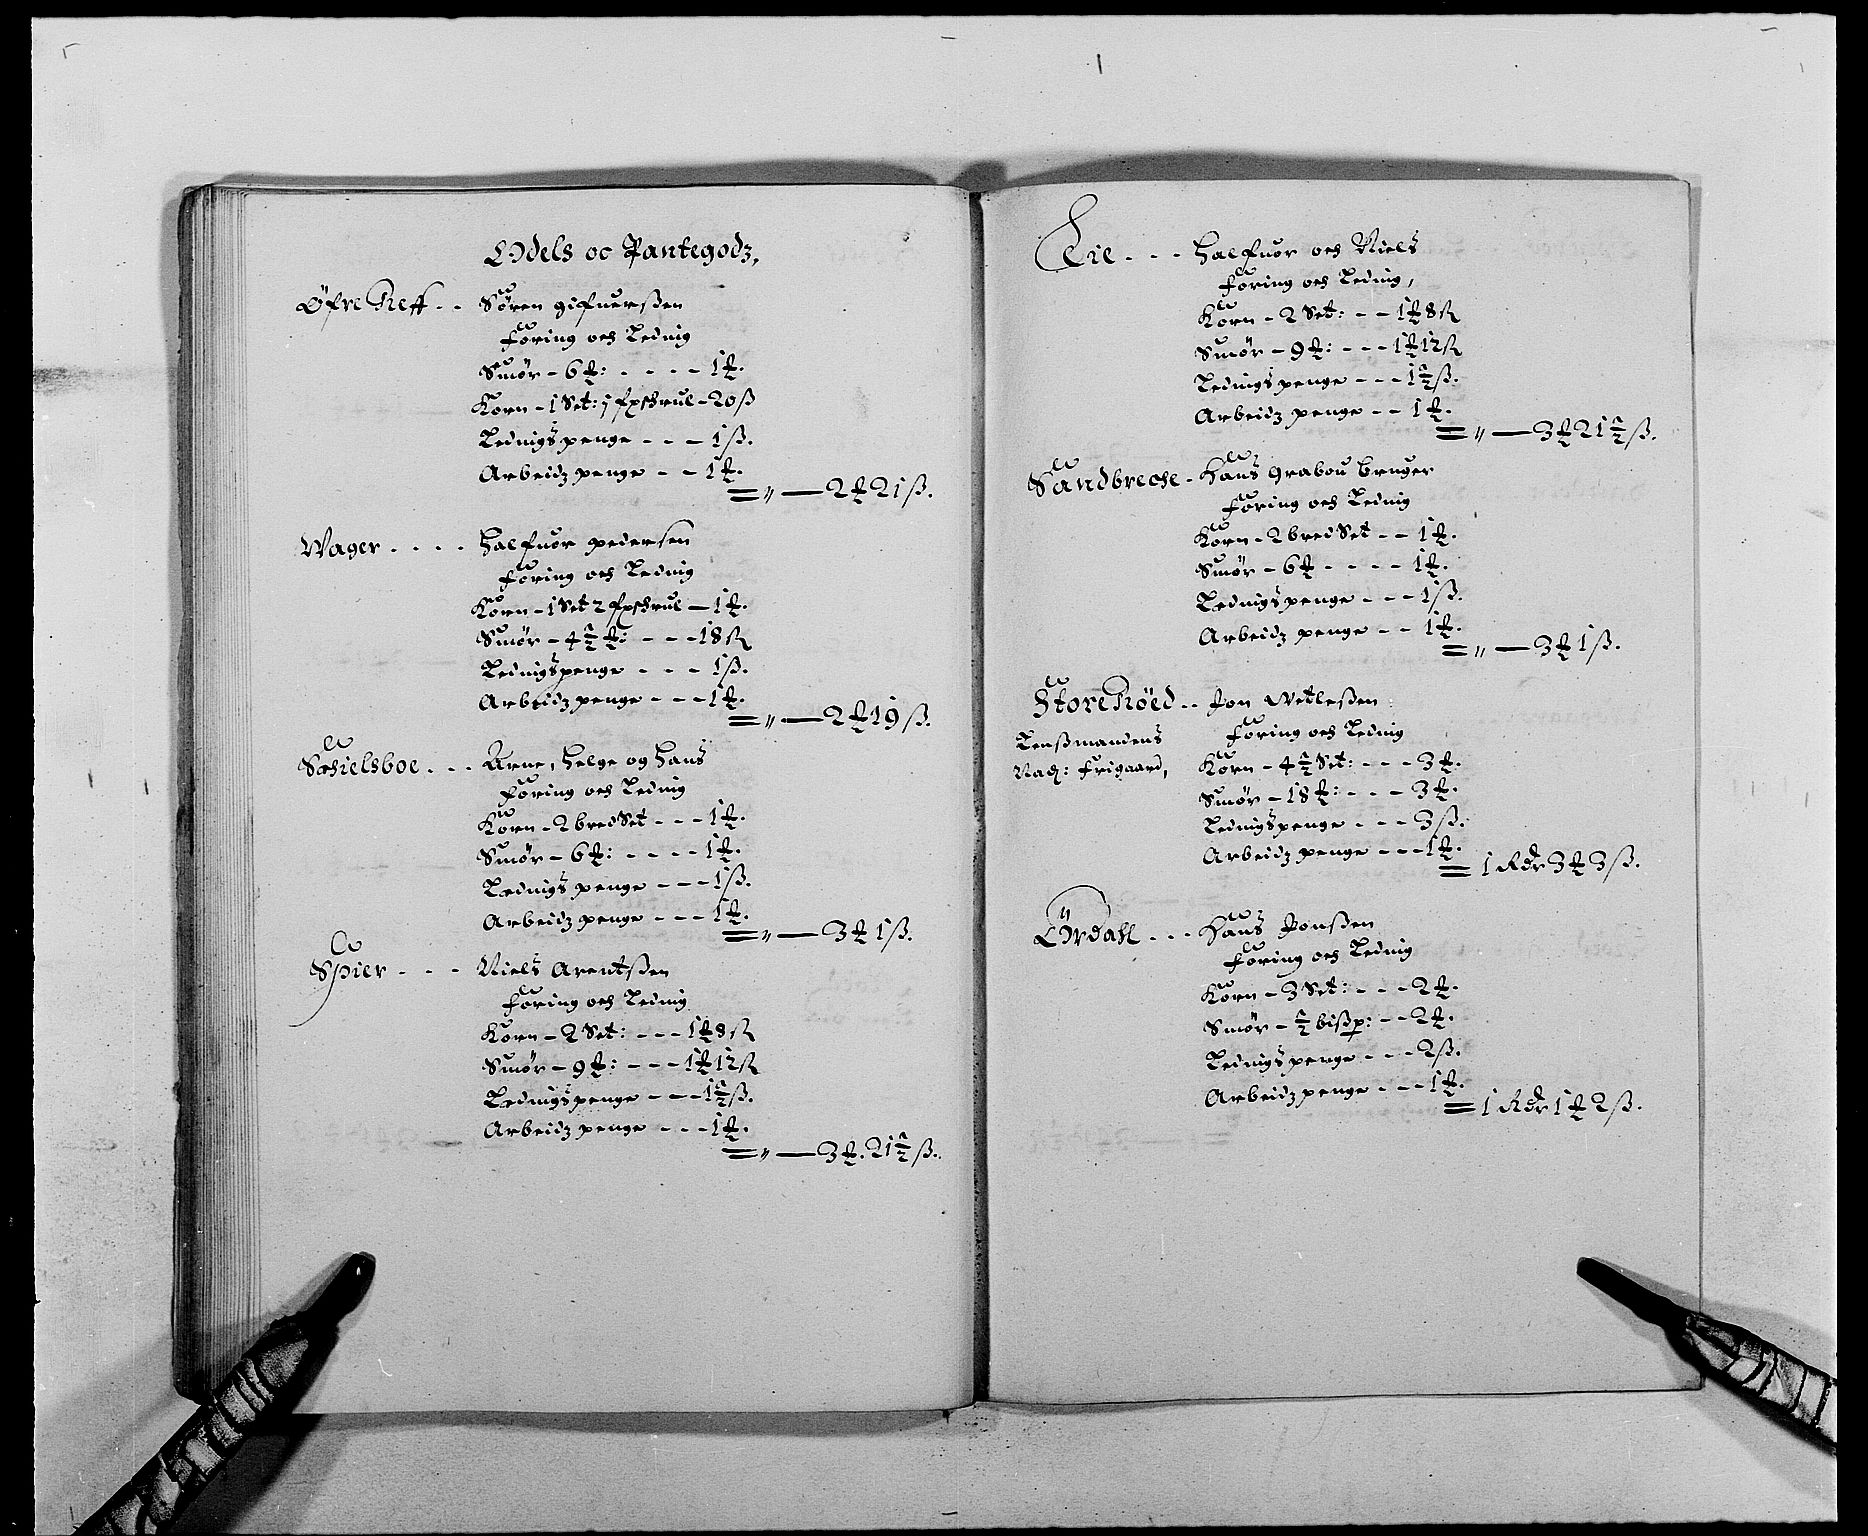 Odels oc Pantegodz,
Øfre Reff - - Søren gifuerßen
Føring och Leding
Smör - 6 ℔: - - - - 1 ℔.
Korn - 1 Set: j - 20 ß
Ledings penge - - - 1 ß.
Arbeidz penge - - 1 ℔.
= „ — 2 ℔ 21 ß.
Wager - - - - Halfuor pedersen
Føring och Leding
Korn - 1 Set 2 - 1 ℔.
Smör - 4 ½ ℔: - - - 18 ß
Ledings penge - - - 1 ß.
Arbeidz penge - - - 1 ℔.
= „ — 2 ℔ 19 ß.
Schielsboe - - - Arne, Helge og Hans
Føring och Leding
Korn - 2 bred Set - - - 1 ℔.
Smör - 6 ℔: - - - - 1 ℔.
Ledings penge - - - 1 ß.
Arbeidz penge - - - 1 ℔.
= „ — 3 ℔ 1 ß.
Spier - - - Niels Arentßen
Føring och Leding
Korn - 2 Set: - - - 1 ℔ 8 ß
Smör - 9 ℔: - - - 1 ℔ 12 ß
Ledings penge - - - 1 ½ ß.
Arbeidz penge - - - 1 ℔.
= „ — 3 ℔. 21 ½ ß.
Eie - - - Halfuor och Niels
Føring och Leding,
Korn - 2 Set: - - 1 ℔ 8 ß
Smör - 9 ℔: - - - 1 ℔ 12 ß
Ledings penge - - - 1 ½ ß.
Arbeidz penge - - 1 ℔.
= „ — 3 ℔ 21 ½ ß.
Sandbreche - Hans Grabou bruger
Føring och Leding
Korn - 2 bred Set - - 1 ℔.
Smör - 6 ℔ - - - - 1 ℔.
Ledings penge - - - 1 ß.
Arbeidz penge - - 1 ℔.
= „ — 3 ℔ 1 ß.
Store Röed - - Jon Wetleßen
Lenßmandens Føring och Leding
frigaard, Korn - 4 ½ Set: - - - 3 ℔.
Smör - 18 ℔: - - - 3 ℔.
Ledings penge - - - 3 ß.
Arbeidz penge - - - 1 ℔.
= 1 Rdr 3 ℔ 3 ß.
Ördahl - - - Hans Jonßen
Føring och Leding
Korn - 3 Set: - - - 2 ℔.
Smör - ½ bißp: - - 2 ℔.
Ledings penge - - - 2 ß.
Arbeidz penge - - - 1 ℔.
= 1 Rdr 1 ℔ 2 ß.